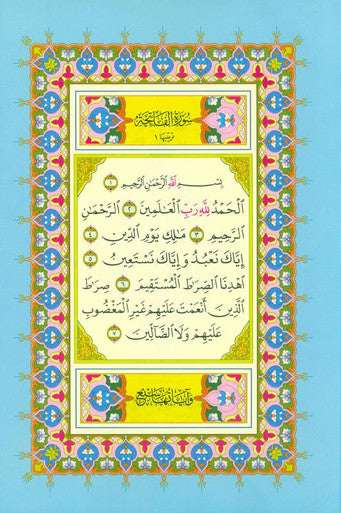 سورة الفاتحة
ترتيبها ١
بِسْمِ اللَّهِ الرَّحْمَٰنِ الرَّحِيمِ ١
الْحَمْدُ لِلَّهِ رَبِّ الْعَٰلَمِينَ ٢ الرَّحْمَٰنِ
الرَّحِيمِ ٣ مَٰلِكِ يَوْمِ الدِّينِ ٤
إِيَّاكَ نَعْبُدُ وَإِيَّاكَ نَسْتَعِينُ ٥
اهْدِنَا الصِّرَٰطَ الْمُسْتَقِيمَ ٦ صِرَٰطَ
الَّذِينَ أَنْعَمْتَ عَلَيْهِمْ غَيْرِ الْمَغْضُوبِ
عَلَيْهِمْ وَلَا الضَّالِّينَ ٧
وآياتها سبع